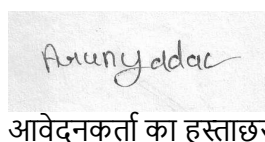 Arunyadac
आवेदनकर्ता का हस्ताछर